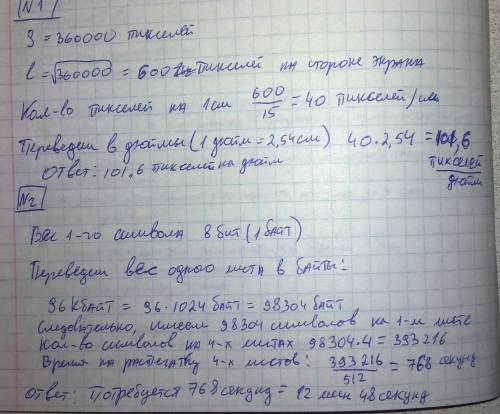 N1
S = 360000 пикселей
l = √360000 = 600 пикселей на стороне экрана
Кол-во пикселей на 1см 600/15 = 40 пикселей/см
Переведем в дюймы (1 дюйм = 2,54см) 40·2,54 = 101,6 пикселей/дюйм
Ответ: 101,6 пикселей на дюйм
N2
Вес 1-го символа 8 бит (1 байт)
Переведем вес одного листа в байты:
96 Кбайт = 96·1024 байт = 98304 байт
Следовательно, имеем 98304 символов на 1-м листе
Кол-во символов на 4-х листах 98304·4 = 393216
Время на распечатку 4-х листов: 393216/512 = 768 секунд
Ответ: Потребуется 768 секунд = 12 мин 48 секунд